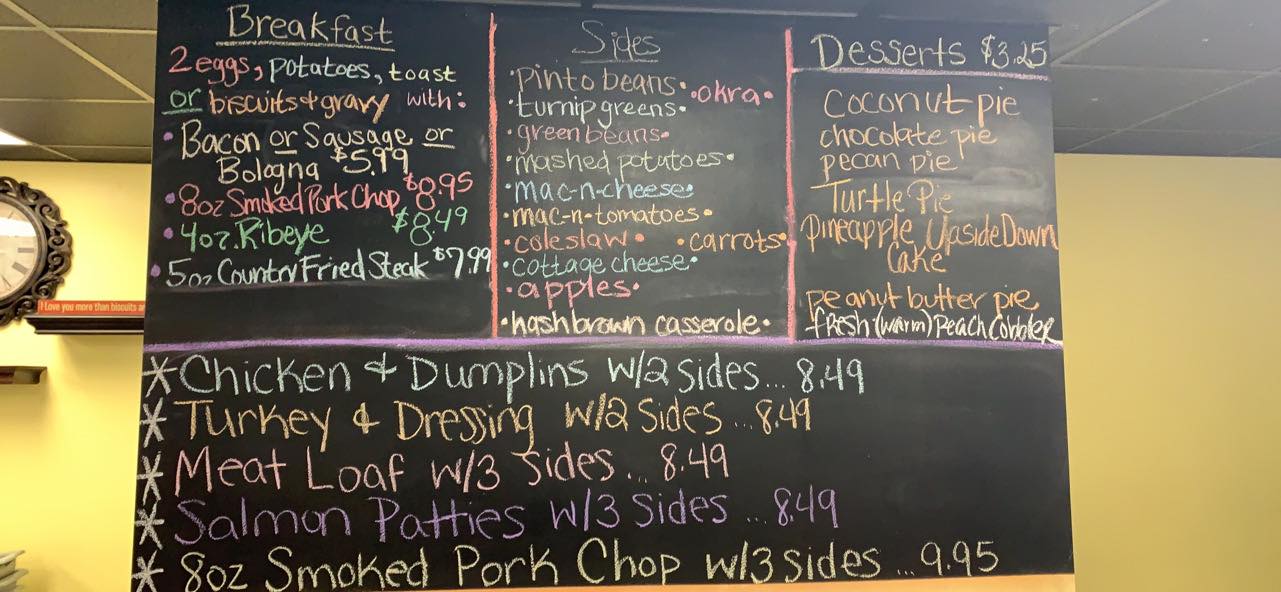 Breakfast
2 eggs, potatoes, toast
or biscuits & gravy with:
• Bacon or Sausage or
Bologna $5.99
• 8oz Smoked Pork Chop $8.95
• 4oz. Ribeye $8.49
• 5oz Country Fried Steak $7.99
Sides
• pinto beans •
• okra •
• turnip greens •
• green beans •
• mashed potatoes •
• mac-n-cheese •
• mac-n-tomatoes •
• coleslaw • • carrots •
• cottage cheese •
• apples •
• hashbrown casserole •
Desserts $3.25
Coconut pie
chocolate pie
pecan pie
Turtle Pie
Pineapple Upside Down
Cake
peanut butter pie
fresh (warm) Peach Cobbler
I Love you more than biscuits
* Chicken & Dumplins w/2 sides... 8.49
* Turkey & Dressing w/2 Sides ... 8.49
* Meat Loaf w/3 sides... 8.49
* Salmon Patties w/3 Sides ... 8.49
* 8oz Smoked Pork Chop w/3 sides ... 9.95